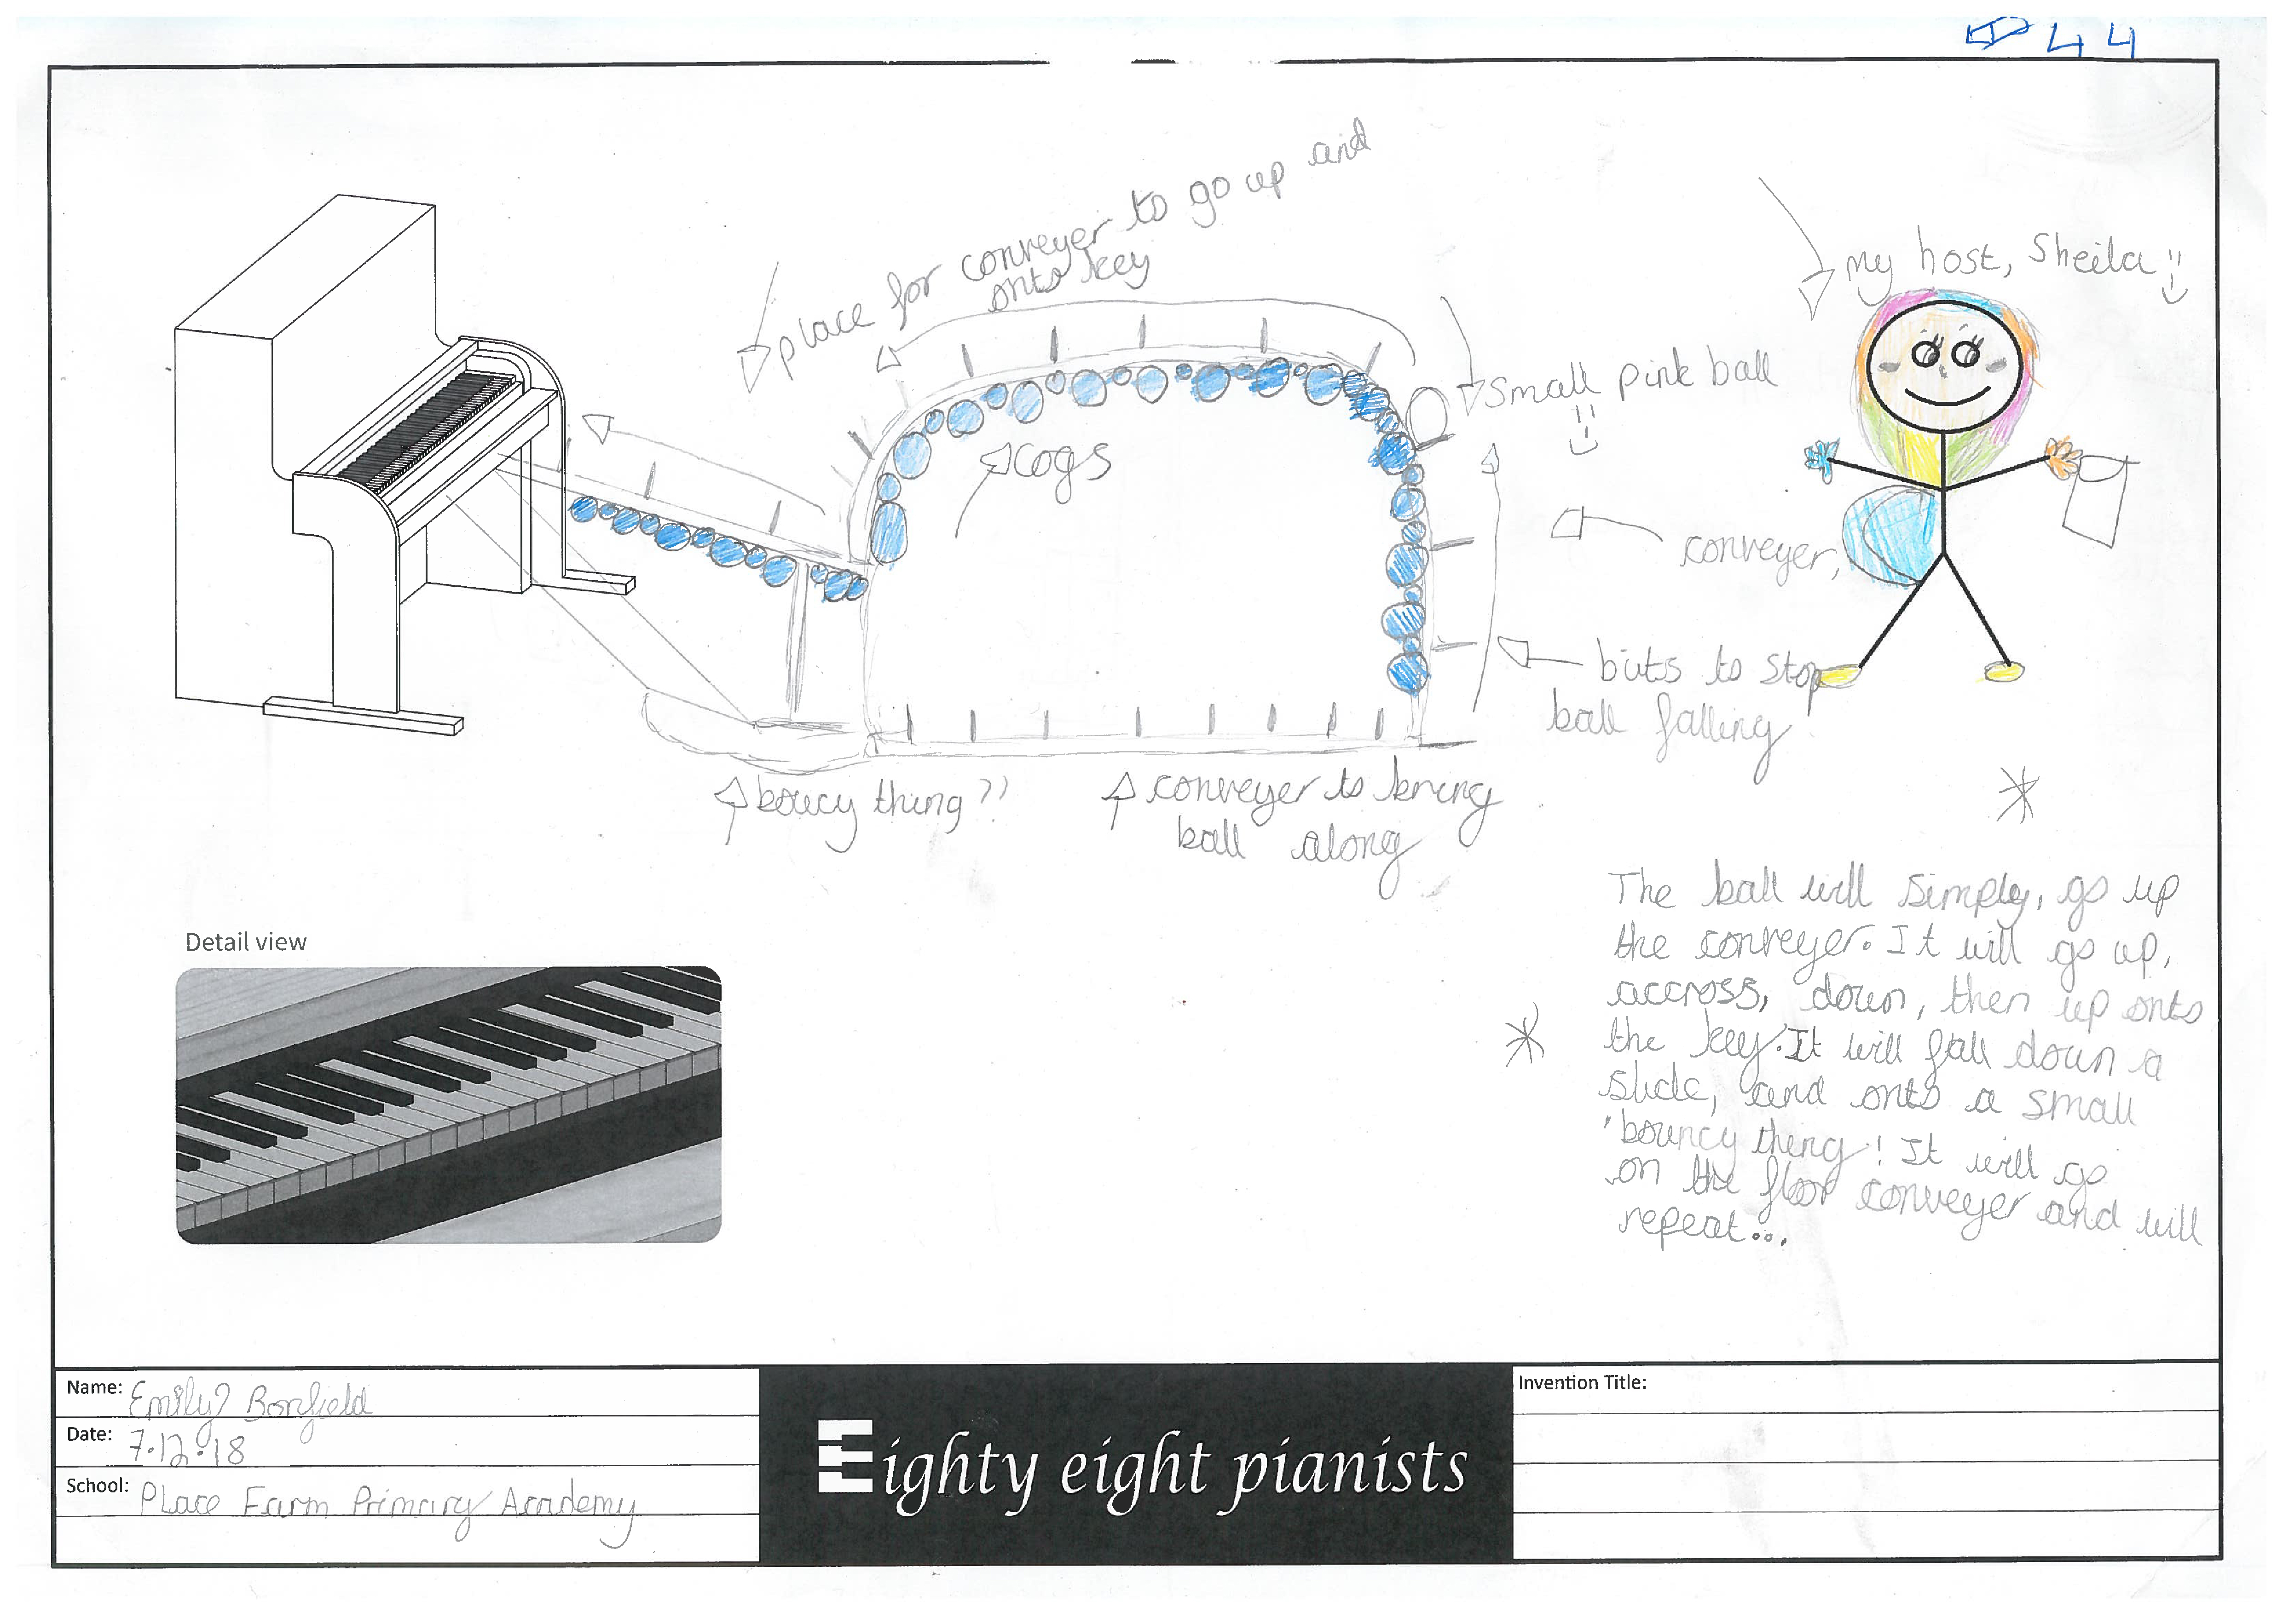 44
place for conveyer to go up and
onto key
my host, Sheila
Small pink ball
cogs
conveyer,
bits to stop
ball falling
boucy thing??
conveyer to bring
ball along
The ball will simply, go up
the conveyer. It will go up,
accross, down, then up onto
the key. It will fall down a
slide, and onto a small
'bouncy thing'! It will go
on the floor conveyer and will
repeat...
Detail view
Name: Emily Bonfield
Date: 7.12.18
School: Place Farm Primary Academy
Eighty eight pianists
Invention Title: